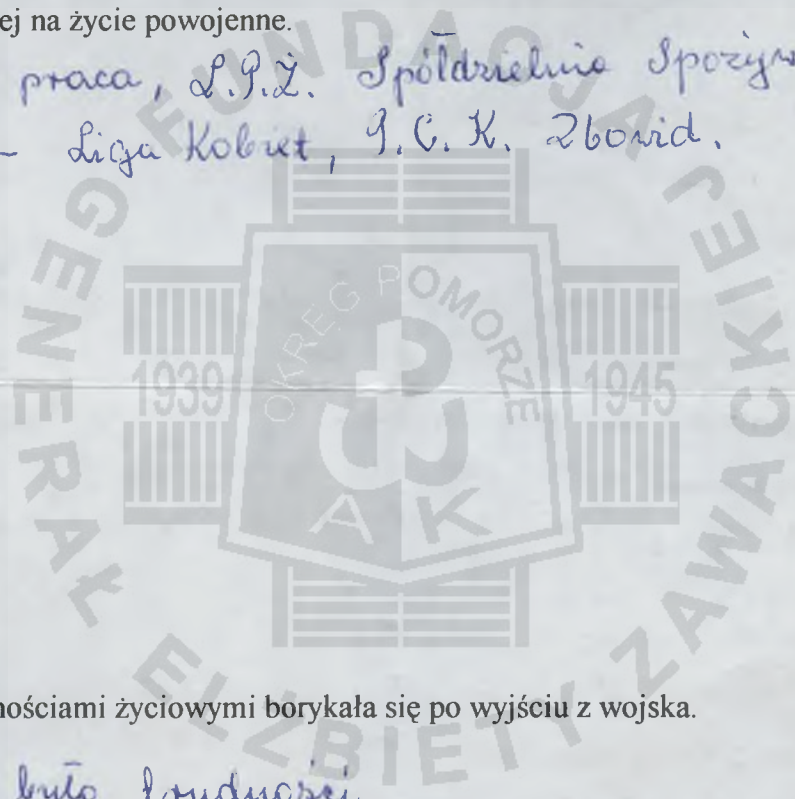 ej na życie powojenne.
praca, L.P.Ż. Spółdzielnia Spożyw
- Liga Kobiet, P.C.K. Zbowid.
FUNDACJA GENERAŁ ELŻBIETY ZAWACKIEJ
OKRĘG POMORZE
1939 1945
AK
nościami życiowymi borykała się po wyjściu z wojska.
było trudności